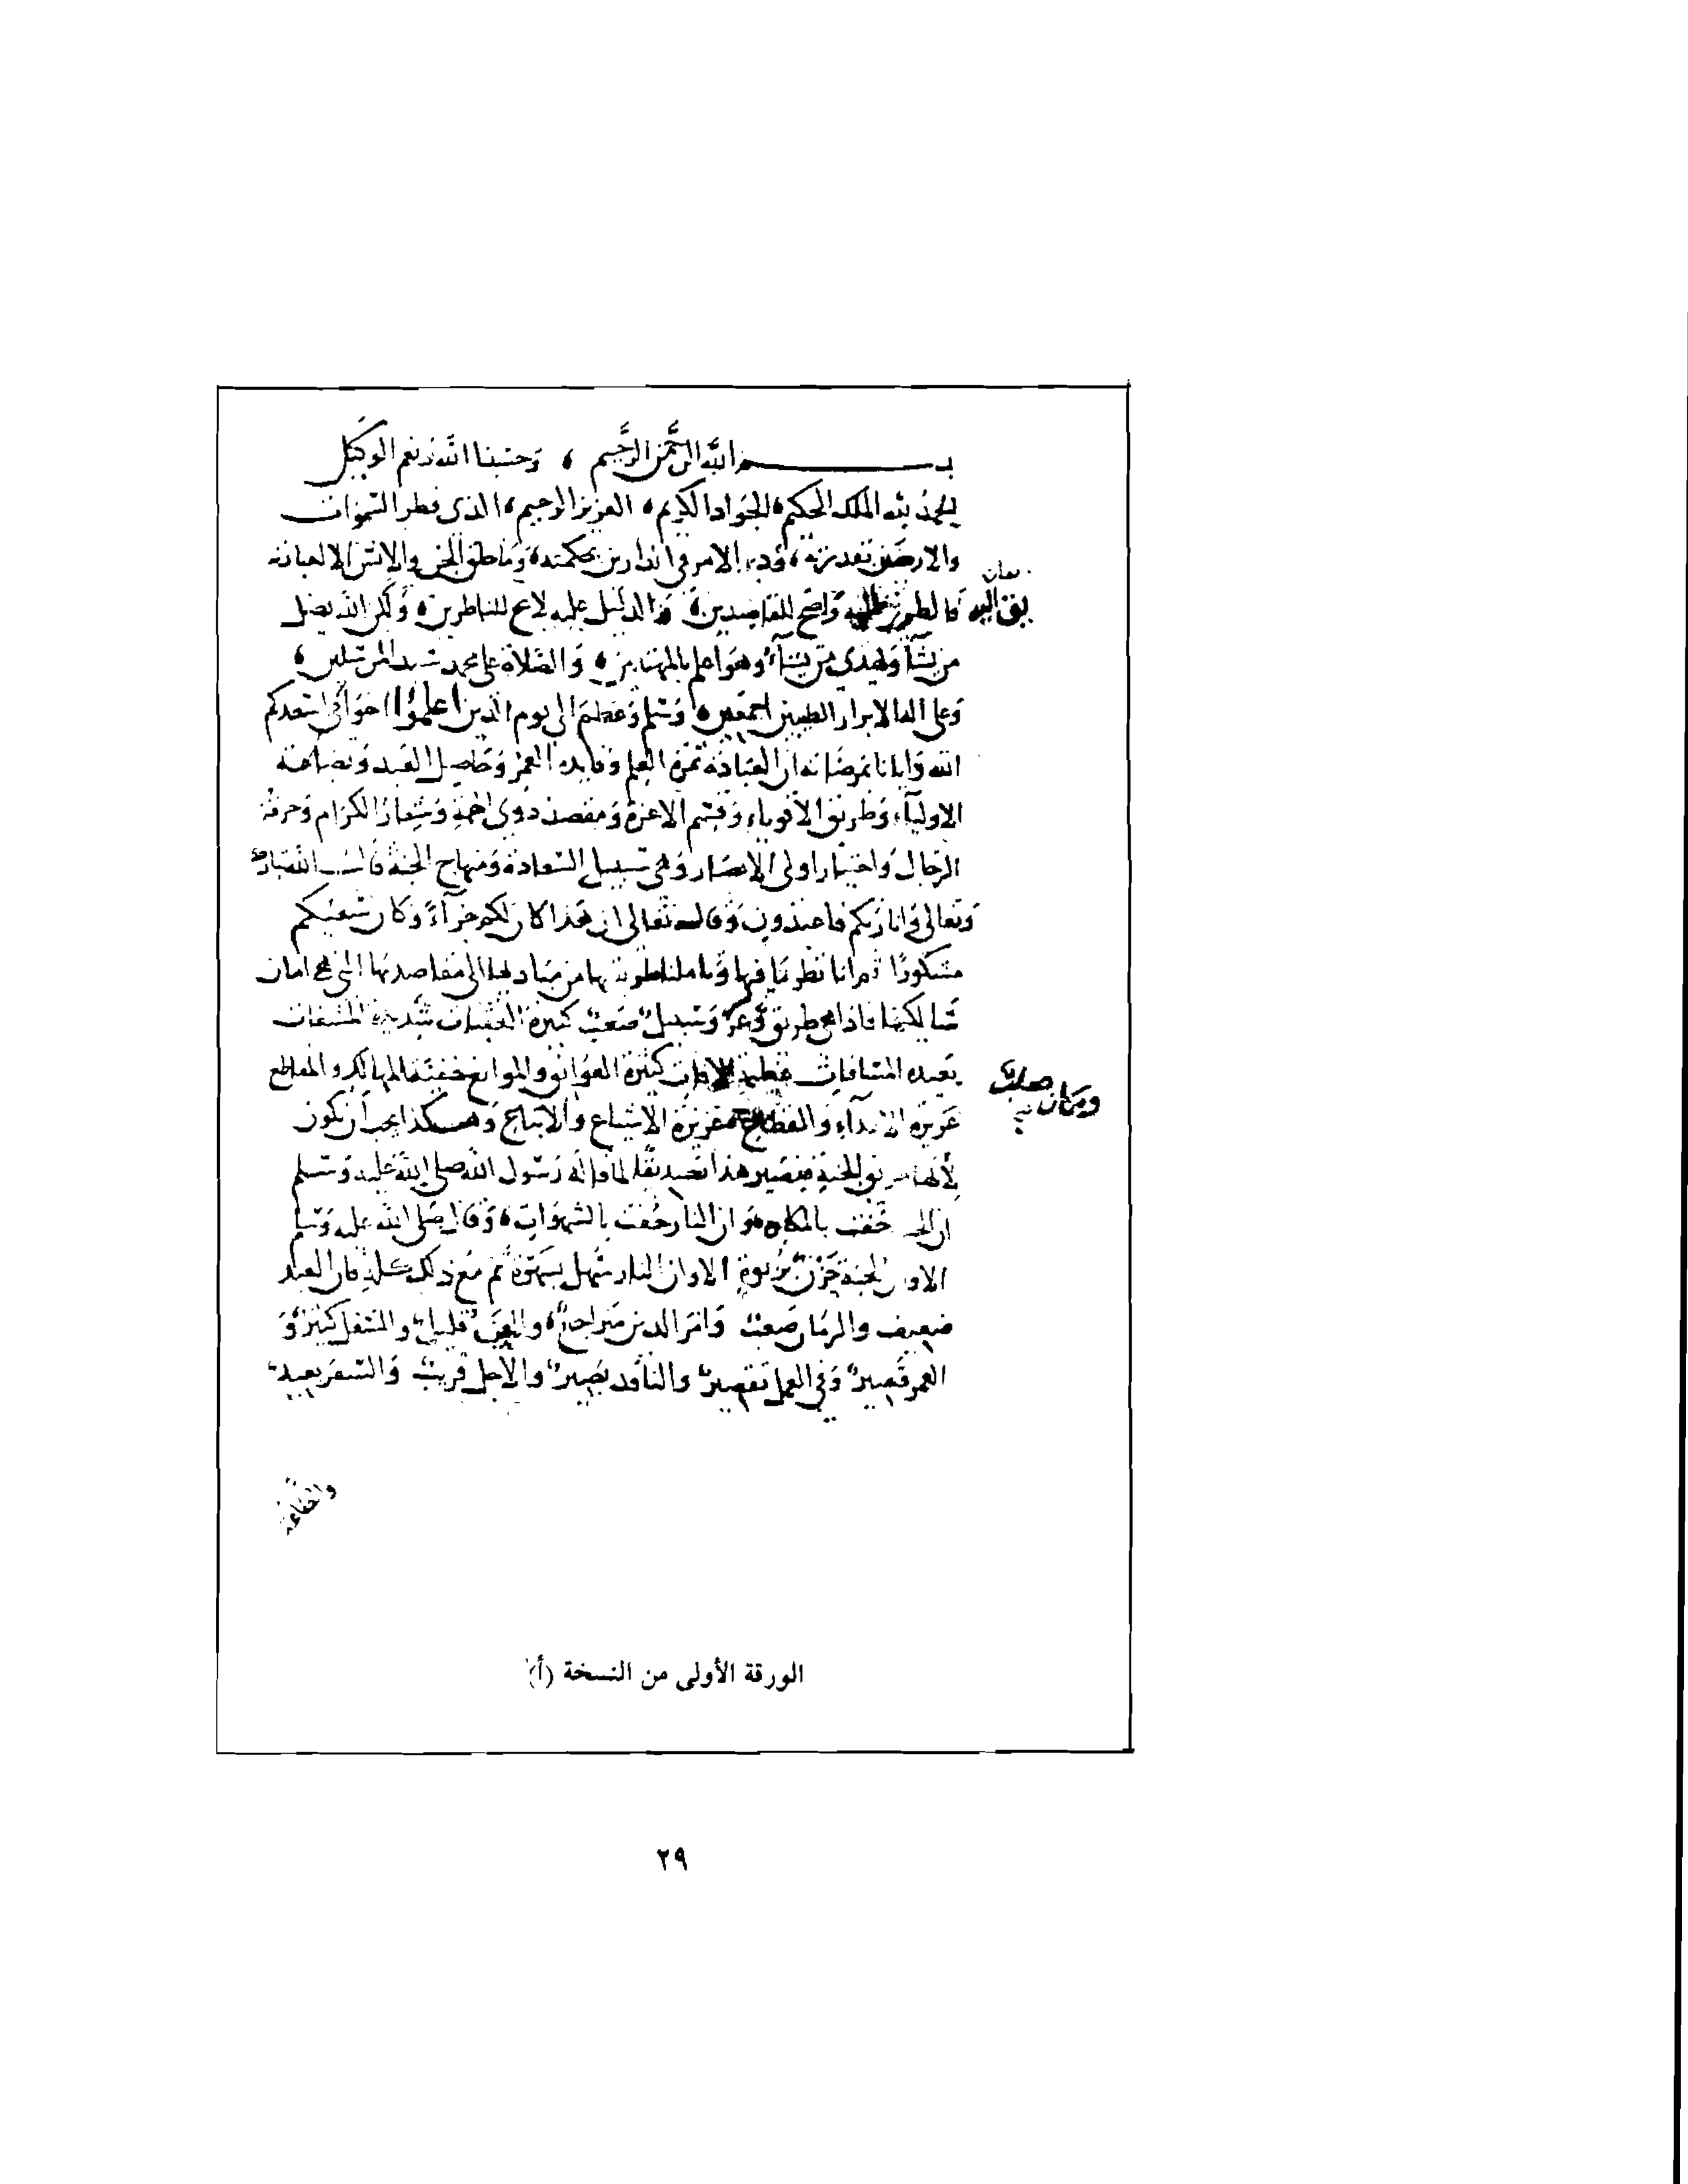 بسم الله الرحمن الرحيم ، وحسبنا الله ونعم الوكيل
الحمد لله الملك الحكيم ، الجواد الكريم ، العزيز الرحيم ، الذي فطر السموات
والارضين بقدرته ، ودبر الامر في الدارين بحكمته ، وما خلق الجن والانس الا لعبادته
فالطريق اليه واضح للقاصدين ، والدليل عليه لائح للناظرين ، ولكن الله يضل
من يشآ ويهدي من يشآء وهو اعلم بالمهتدين ، والصلاة على محمد سيد المرسلين ،
وعلى اله الابرار الطيبين اجمعين ، وسلم وعظم الى يوم الدين اعلموا اخواني اسعدكم
الله وايانا بمرضاته ان العبادة ثمرة العلم وفايدة العمر وحاصل العبد وبضاعة
الاوليآء وطريق الاقوياء وقسم الاعزة ومقصد ذوي الهمة وشعار الكرام وحرفة
الرجال واختيار اولي الابصار وهي سبيل السعادة ومنهاج الجنة قال الله تبارك
وتعالى وانا ربكم فاعبدون وقال تعالى ان هذا كان لكم جزآء وكان سعيكم
مشكورا ثم انا نظرنا فيها وتاملنا طريقها من مباديها الى مقاصدها التي هي اماني
سالكيها فاذا هي طريق وعر وسبيل صعب كثيرة العقبات شديدة المشقات
بعيدة المسافات عظيمة الافات كثيرة العوائق والموانع خفية المهالك والمقاطع
غزيرة الاعدآء والقطاع عزيزة الاشياع والاتباع وهكذا يجب ان تكون
لانها طريق الجنة فيصير هذا تصديقا لما قاله رسول الله صلى الله عليه وسلم
ان الجنة حفت بالمكاره وان النار حفت بالشهوات ، وقال صلى الله عليه وسلم
الا وان الجنة حزن بربوة الا وان النار سهل بسهوة ثم مع ذلك كله فان العبد
ضعيف والزمان صعب وامر الدين متراجع ، والفراغ قليل والشغل كثير و
العمر قصير وفي العمل تقصير والناقد بصير والاجل قريب والسفر بعيد
الورقة الأولى من النسخة (أ)
٢٩